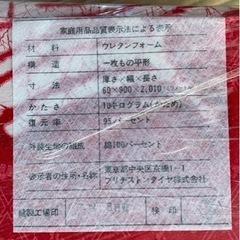 家庭用品品質表示法による表示
材料 ウレタンフォーム
構造 一枚もの平形
寸法 厚さ/幅×長さ
60×900×2,010
かたさ 10キログラム(かため)
復元率 95パーセント
外装生地の組成 綿100パーセント
表示者の住所・名称 東京都中央区京橋1-1
ブリヂストンタイヤ株式会社
縫製工場印 検印